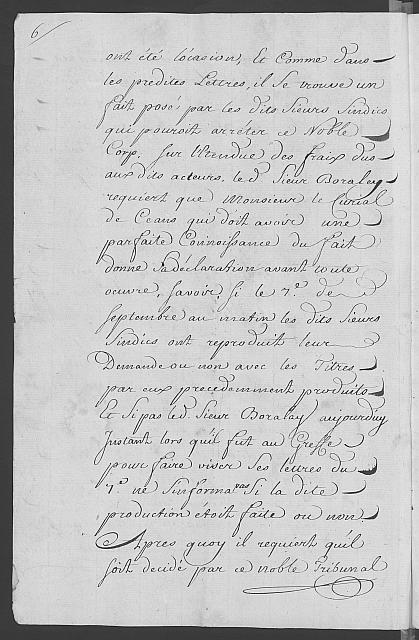 6
ont été l'ocasion, Et Comme dans
les predites Lettres, il se trouve un
fait posé par les dits Sieurs Sindics
qui pouroit arréter ce Noble
Corp. Sur l'Etendue des fraix dus
aux dits acteurs. led. Sieur Boralay
requiert que Monsieur le Curial
de Ceans qui doit avoir une
parfaite Connoissance du fait
donne sa déclaration avant toute
oeuvre, savoir, si le 7.e de
Septembre au matin les dits Sieurs
Sindics ont reproduit leur
Demande ou non avec les Titres
par eux precedemment produits
Et Si pas led. Sieur Boralay aujourduy
Instant lors qu'il fut au Greffe
pour faire viser Ses lettres du
7.e ne S'informa pas Si la dite
production étoit faite ou non
Apres quoy il requiert qu'il
soit decidé par ce noble Tribunal